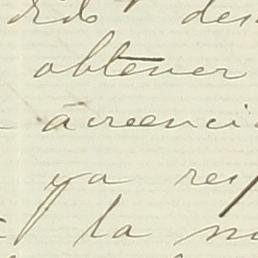 dido des
obtener
acreenci
ya res
la m